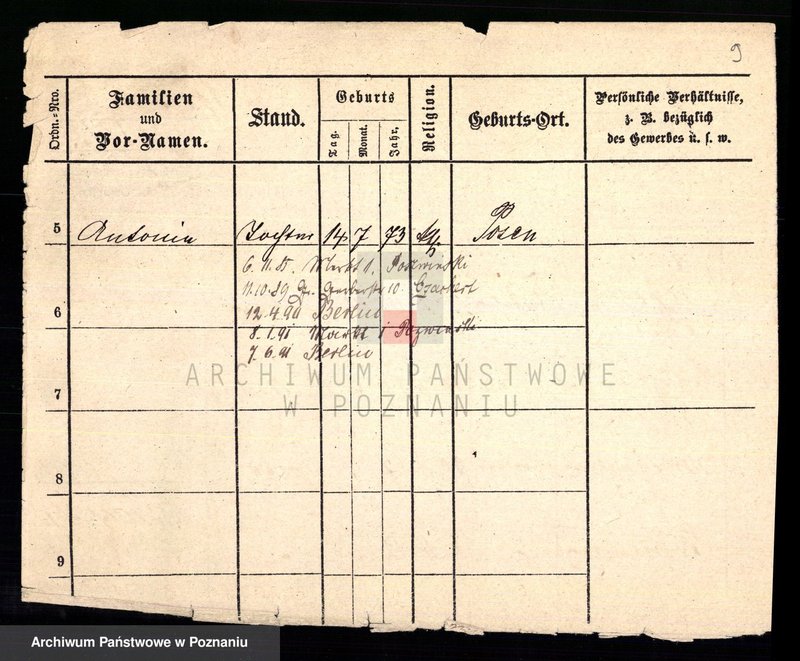 9
Ordn.-Nro.
Familien
und
Vor-Namen.
Stand.
Geburts
Tag.
Monat.
Jahr.
Religion.
Geburts-Ort.
Persönliche Verhältnisse,
z. B. bezüglich
des Gewerbes u. s. w.
5 Antonia Tochter 14 7 73 Posen
6.11.85. Markt 1.
11.10.89 Gr. Gerberstr 10.
6 12.4.90 Berlin
8.1.91 Markt 1
7.6.91 Berlin
ARCHIWUM PAŃSTWOWE
W POZNANIU
7
8
9
Archiwum Państwowe w Poznaniu